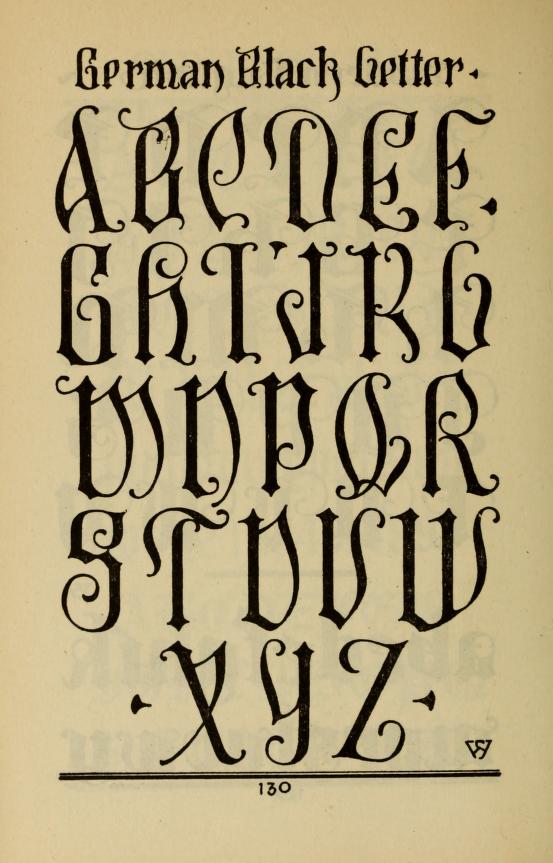 German Black Letter.
ABCDEF.
GHIJKL
MNPQR
STUVW
·XYZ·
130